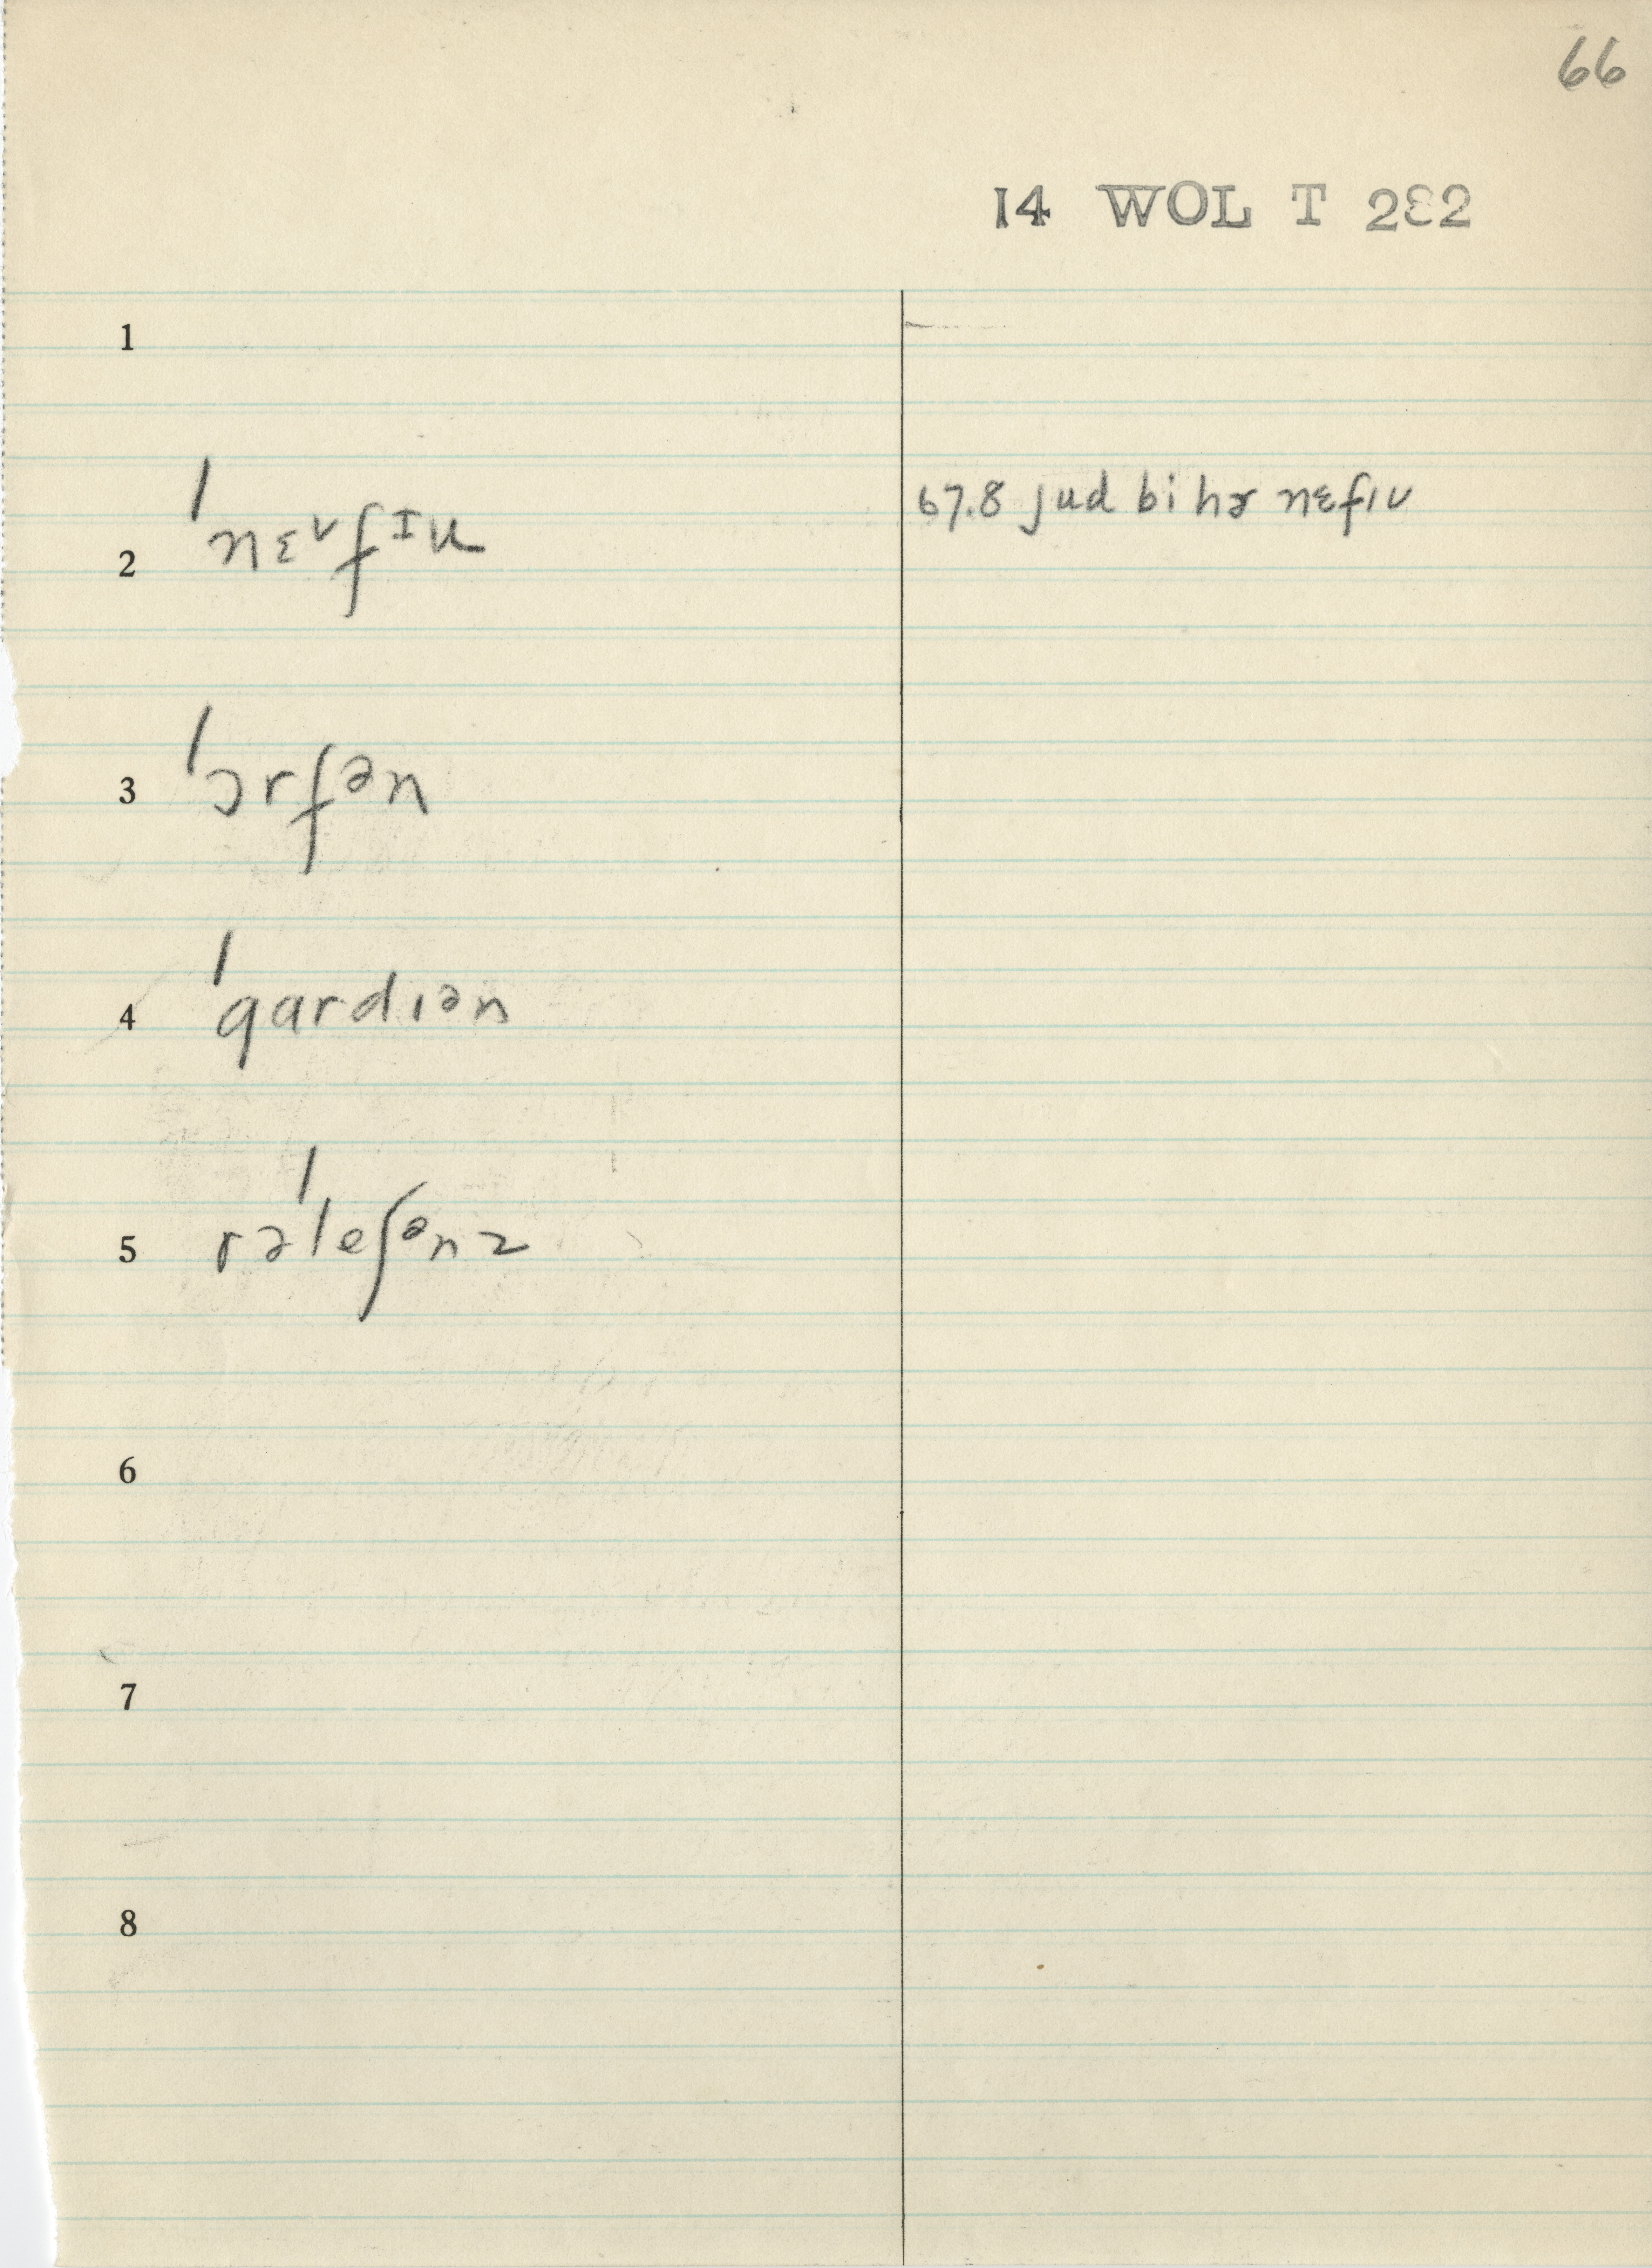 66
14 WOL T 282
1
2 ˈnɛᵛfɪu 67.8 jud bi hɚ nɛfɪu
3 ˈɔrfən
4 ˈgardɪən
5 rəˈleʃənz
6
7
8